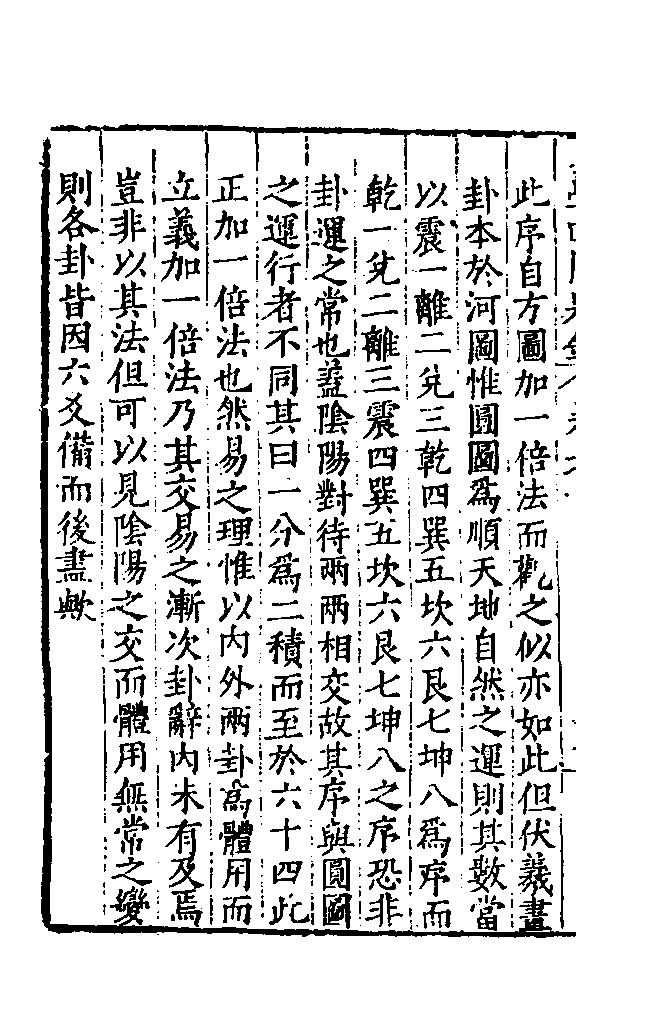 此序自方圖加一倍法而觀之似亦如此但伏羲畫
卦本於河圖惟圓圖為順天地自然之運則其數當
以震一離二兌三乾四巽五坎六艮七坤八為序而
乾一兌二離三震四巽五坎六艮七坤八之序恐非
卦運之常也蓋陰陽對待兩兩相交故其序與圓圖
之運行者不同其曰一分為二積而至於六十四此
正加一倍法也然易之理惟以內外兩卦為體用而
立義加一倍法乃其交易之漸次卦辭內未有及焉
豈非以其法但可以見陰陽之交而體用無常之變
則各卦皆因六爻備而後盡歟